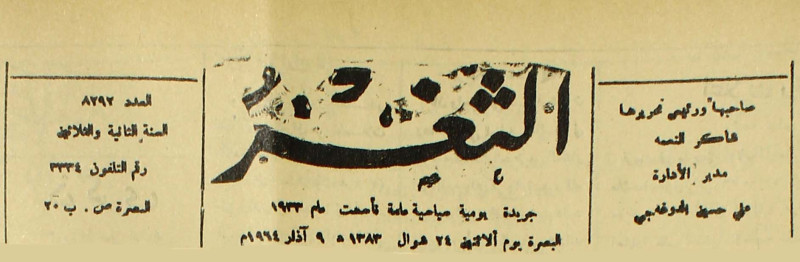 صاحبها ورئيس تحريرها
شاكر النعمه
مدير الأدارة
علي حسين
الثغر
جريدة يومية سياسية عامة تأسست عام ١٩٣٣
البصرة يوم ألاثنين ٢٤ شوال ١٣٨٣ ه ٩ آذار ١٩٦٤م
العدد ٨٢٩٢
السنة الثانية والثلاثين
رقم التلفون ٣٣٣٤
البصرة ص . ب ٢٠